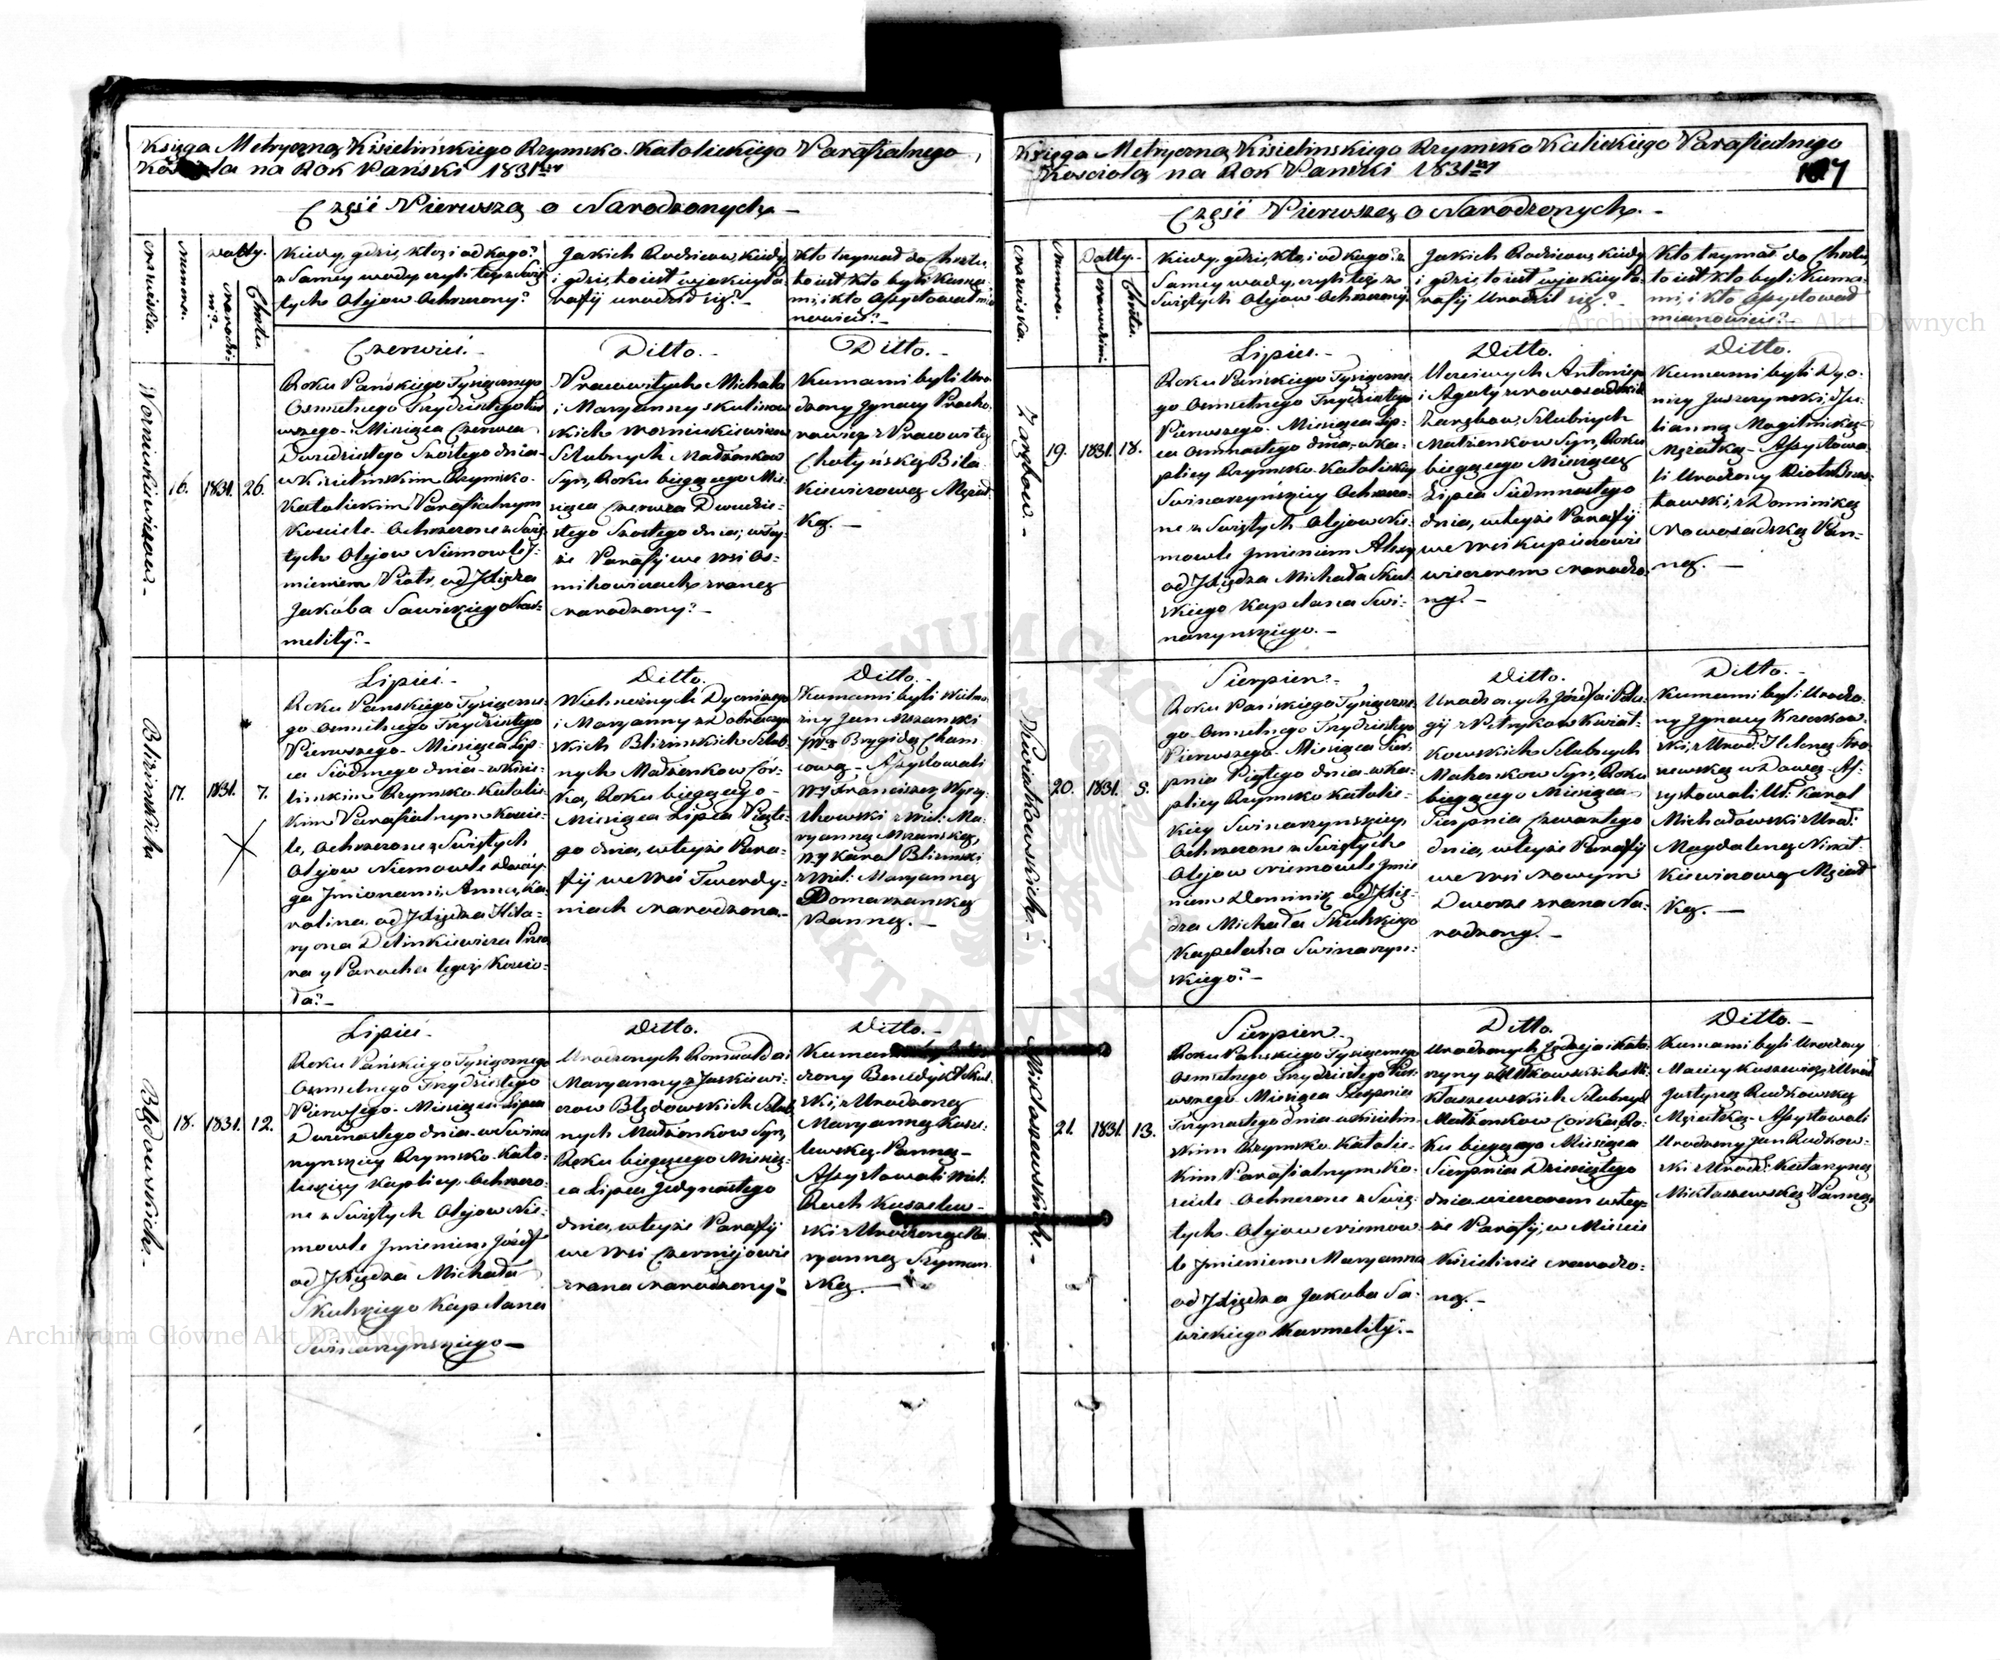 Księga Metryczna Kisielińskiego Rzymsko-Katolickiego Parafialnego
Kościoła na Rok Pański 1831ny
Część Pierwsza o Narodzonych
nazwiska.
Numera.
Datty.
narodzi:
ni?
Chrztu.
Kiedy, gdzie, kto, i od kogo?
z Samey wody czyli też z Świę
tych Olejow Ochrzcony?
Jakich Rodzicow, kiedy
i gdzie, to iest w jakiey Pa
rafij urodził się?
Kto trzymał do Chrztu,
to iest kto byli Kuma:
mi, i kto Assystował mia
nowicie?
Woronieckiewiczow.
16.
1831.
26.
Czerwiec.
Roku Pańskiego Tysiącznego
Osmsetnego Trzydziestego Pier
wszego Miesiąca Czerwca
Dwudziestego Szóstego dnia
w Kisielinskim Rzymsko-
Katolickim Parafialnym
Kościele Ochrzcone z Swię
tych Olejow Niemowle J:
mieniem Piotr, od Xiędza
Jakóba Sawickiego Kar:
melity.
Ditto.
Pracowitych Michała
i Maryanny
Slubnych Małżonkow
Syn, Roku bieżącego Mie:
siąca Czerwca Dwudzie:
stego Szostego dnia, w tey:
że Parafij we wsi Os:
mihowiczach zrana
narodzony.
Ditto.
Kumami byli Uro
dzony Ignacy Procho
rowicz z Pracowitą
Chotyńską
Mężat
ką.
Blizinskich
17.
1831.
7.
Lipiec.
Roku Pańskiego Tysiączne
go Osmsetnego Trzydziestego
Pierwszego Miesiąca Lip:
ca Siódmego dnia w Kisie:
linskim Rzymsko-Katolic:
kim Parafialnym Koscie:
le, Ochrzcone z Swiętych
Olejow Niemowle dwóy
ga Jmionami, Anna, Ka:
rolina, od Xiędza Hila:
ryona Delinkiewicza Prze
ra y Parocha tegoż Koscio:
ła.
Ditto.
Wielmożnych Dyonizego
i Maryanny z Dobrzczyn
skich Blizinskich Slub:
nych Małżonkow Cór:
ka, Roku bieżącego
Miesiąca Lipca Piąte:
go dnia, w teyże Para:
fij we Wsi Twerdy:
niach narodzona.
Ditto.
Kumami byli Wielmo
żny Jan Mszanski
z Brygidą Cham
cową Assystowali
W. Franciszek Wyrzy
kowski z Wiel: Ma:
ryanną Mszanską,
W Karol Blizinski
z Wiel: Maryanną
Domaszanską
Panną.
Błędowskich.
18.
1831.
12.
Lipiec.
Roku Pańskiego Tysiącznego
Osmsetnego Trzydziestego
Pierwszego Miesiąca Lipca
Dwunastego dnia w Swina
rzynskiey Rzymsko-Kato:
lickiey Kaplicy, Ochrzco:
ne z Świętych Olejow Nie:
mowle Jmieniem Józef
od Xiędza Michała
Skulskiego Kapelana
Swinarzynskiego
Ditto.
Urodzonych Romualda i
Maryanny z Jaskiewi:
czow Błędowskich Slub
nych Małżonkow Syn,
Roku bieżącego Miesią:
ca Lipca Jedynastego
dnia, w teyże Parafij
we Wsi Czerniejowie
zrana narodzony.
Ditto.
Kumami
dzony Benedykt Skul
ski, z Urodzoną
Maryanną Kosze:
lewską Panną
Assystowali Wiel:
Roch Koszelew
ski z Urodzoną Ma:
ryanną Szyman
ską.
Księga Metryczna Kisielinskiego Rzymsko Katickiego Parafialnego
Kosciola na Rok Panski 1831ny
107
Część Pierwsza o Narodzonych.
nazwiska.
Numera.
Datty.
narodzeni.
Chrztu.
Kiedy, gdzie, kto, i od kogo? z
Samey wody, czyli też z
Swiętych Olejow Ochrzcony
Jakich Rodzicow, kiedy
i gdzie, to iest w jakiey Pa:
rafij Urodził się?
Kto trzymał do Chrztu,
to iest kto byli Kuma:
mi, i kto Assystował
mianowicie?
Zarębow.
19.
1831.
18.
Lipiec.
Roku Pańskiego Tysiączne
go Osmsetnego Trzydziestego
Pierwszego Miesiąca Lip:
ca Osmnastego dnia, w Ka:
plicy Rzymsko-Katolickiey
Swinarzyńskiey Ochrzco:
ne z Swiętych Olejow Nie:
mowle Jmieniem Alexy
od Xiędza Michała Skul
skiego Kapelana Swi:
narzynskiego.
Ditto.
Uczciwych Antoniego
i Agaty z Nowosadzkich
Zarębow, Slubnych
Małżenkow Syn, Roku
bieżącego Miesiąca
Lipca Siedmnastego
dnia, w teyże Parafij
we Wsi Kupiczowie
wieczorem narodzo:
ny.
Ditto.
Kumami byli Dyo:
nizy Juszczynski, z Ju:
lianną Mogilnicką
Mężatką Assystowa:
li Urodzony
z Dominiką
Nowosadzką Pan:
ną.
Kwiatkowskich.
20.
1831.
5.
Sierpien.
Roku Pańskiego Tysiączne
go Osmsetnego Trzydziestego
Pierwszego Miesiąca Sier
pnia Piątego dnia w Ka:
plicy Rzymsko Katolic:
kiey Swinarzynskiey,
Ochrzcone z Swiętych
Olejow Niemowle Jmie
niem Dominik od Xię:
dza Michała Skulskiego
Kapelana Swinarzyn:
skiego.
Ditto.
Urodzonych Józefa i Pela:
gij z Petrykow Kwiat:
kowskich Slubnych
Małżonkow Syn, Roku
bieżącego Miesiąca
Sierpnia Czwartego
dnia, w teyże Parafij
we Wsi Nowym
Dworze zrana Na:
rodzony.
Ditto.
Kumami byli Urodzo:
ny Ignacy Krzeczkow:
ski, z Urod: Heleną
wdową As:
systowali Ur: Karol
Michałowski z Urod:
Magdaleną
Mężat
ką.
Miklaszewskich.
21.
1831.
13.
Sierpien.
Roku Pańskiego Tysiącznego
Osmsetnego Trzydziestego Pier
wszego Miesiąca Sierpnia
Trzynastego dnia w Kisielin
skim Rzymsko Katolic:
kim Parafialnym Ko:
sciele Ochrzcone z Swię:
tych Olejow Niemow
le Jmieniem Maryanna
od Xiędza Jakuba Sa:
wickiego Karmelity.
Ditto.
Urodzonych Jędrzeja i Kata:
rzyny z Mi:
kłaszewskich Slubnych
Małżonkow Corka, Ro:
ku bieżącego Miesiąca
Sierpnia Dziesiątego
dnia wieczorem w tey:
że Parafij, w Miescie
Kisielinie narodzo:
na.
Ditto.
Kumami byli Urodzony
Maciey Kuszewicz, z Urod:
Justyną Rudkowską
Mężatką Assystowali
Urodzony Jan Rudkow:
ski z Urodz: Katarzyną
Miklaszewską Panną.
Archiwum Główne Akt Dawnych
Archiwum Główne Akt Dawnych